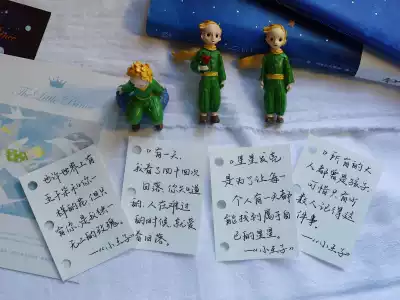 The Little Prince
也许世界上有
五千朵和你一
样的花，但只
有你，是我独一
无二的玫瑰。
——《小王子》
“有一天，
我看了四十四次
日落。你知道
的，人在难过
的时候就爱
看日落。
——《小王子》
“星星发亮
是为了让每一
个人有一天都
能找到属于自
己的星星。
——《小王子》
“所有的大
人都曾是孩子
可惜只有少
数人记得这
件事。
——《小王子》